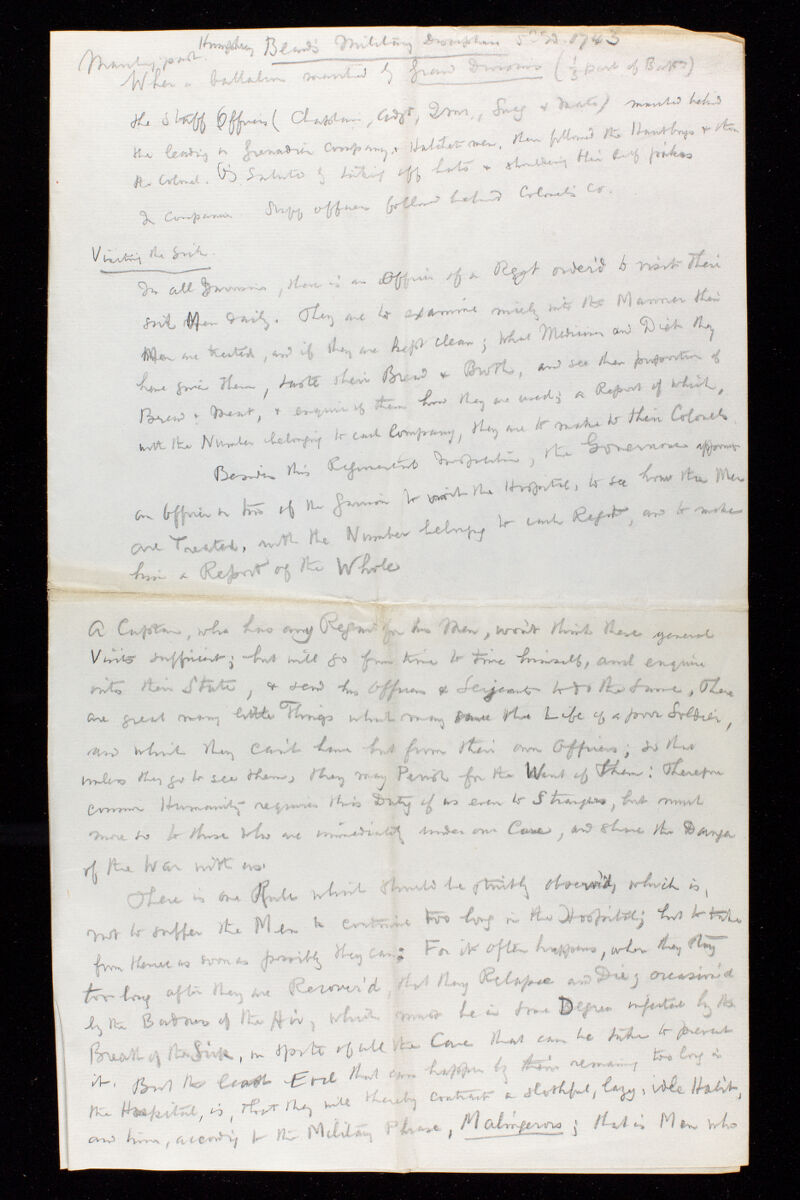 Humphrey Bland's Military Discipline 5th Ed. 1743
March past.
When a battalion marched by Grand Divisions (1/3 part of Battn)
the Staff Officers (Chaplain, Adjt, Qmr., Surg & Mate) marched behind
the leading or Grenadier Company & Hatchet men, then followed the Hautboys & then
the Colonel. Saluted by taking off hats & their half pikes
In Companies Staff officers follow behind Colonel's Co.
Visiting the Sick.
In all Garrisons, there is an Officer of a Regt order'd to visit their
sick Men daily. They are to examine nicely into the Manner their
Men are treated, and if they are kept clean; what Medicines and Diet they
have given them, taste their Bread & Broth, and see their proportion of
Bread & Meat, & enquire of them how they are used; a Report of which,
with the Number belonging to each Company, they are to make to their Colonels.
Besides this Regimental Inspection, the Governour appoints
an Officer or two of the Garrison to visit the Hospital, to see how the Men
are Treated, with the Number belonging to each Regt, and to make
him a Report of the Whole
A Captain, who has any Regard for his Men, won't think these general
Visits sufficient; but will go from time to time himself, and enquire
into their State, & send his Officers & Serjeants to do the Same, There
are great many little Things which may save the Life of a poor Soldier,
and which they can't have but from their own Officers; so that
unless they go to see them, they may Perish for the Want of Them: Therefore
common Humanity requires this Duty of us even to Strangers, but much
more so to those who are immediately under our Care, and share the Danger
of the War with us.
There is one Rule which should be strictly observ'd, which is,
not to suffer the Men to continue too long in the Hospital; but to take
from thence as soon as possibly they can: For it often happens, when they stay
too long after they are Recover'd, that they Relapse and Die; occasion'd
by the Badness of the Air, which must be in some Degree infected by the
Breath of the Sick, in spite of all the Care that can be take to prevent
it. But the least Evil that can happen by their remaining too long in
the Hospital, is, that they will thereby contract a slothful, lazy, idle Habit,
and turn, according to the Military Phrase, Malingerors; that is Men who